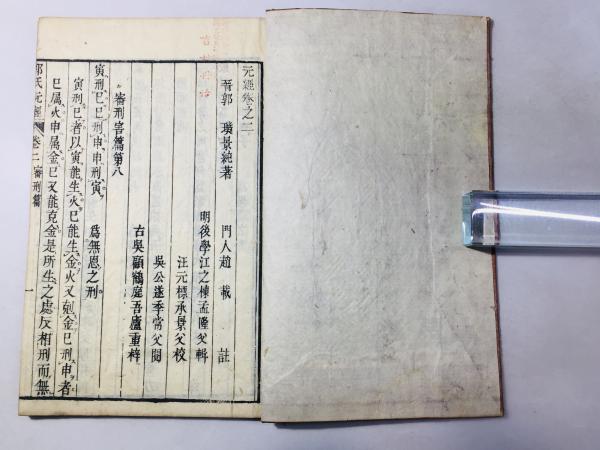 元經卷之二
晋郭璞景純著
門人趙載註
明後學江之棟孟隆父輯
汪元標承景父校
吳公遂季常父閱
古吳顧鶴庭吾廬重梓
審刑害篇第八
寅刑巳巳刑申申刑寅　爲無恩之刑
寅刑巳者以寅能生火巳能生金火又剋金巳刑申者
巳属火申属金巳又能克金是所生之處反相刑而無
郭氏元經　卷二審刑篇　一